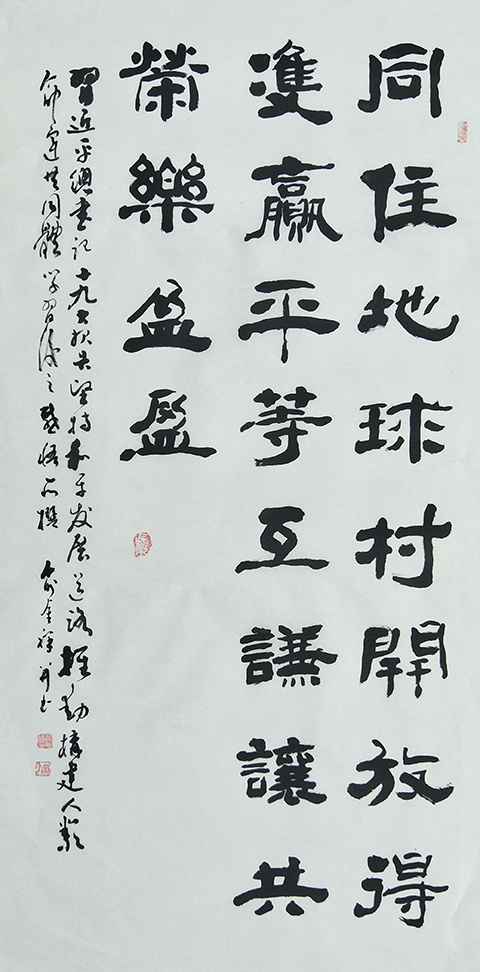 同住地球村開放得
雙贏平等互謙讓共
榮樂盈盈
習近平總書記十九大报告堅持和平发展道路推動構建人類
命運共同體学習後之感悟而撰 俞金并书